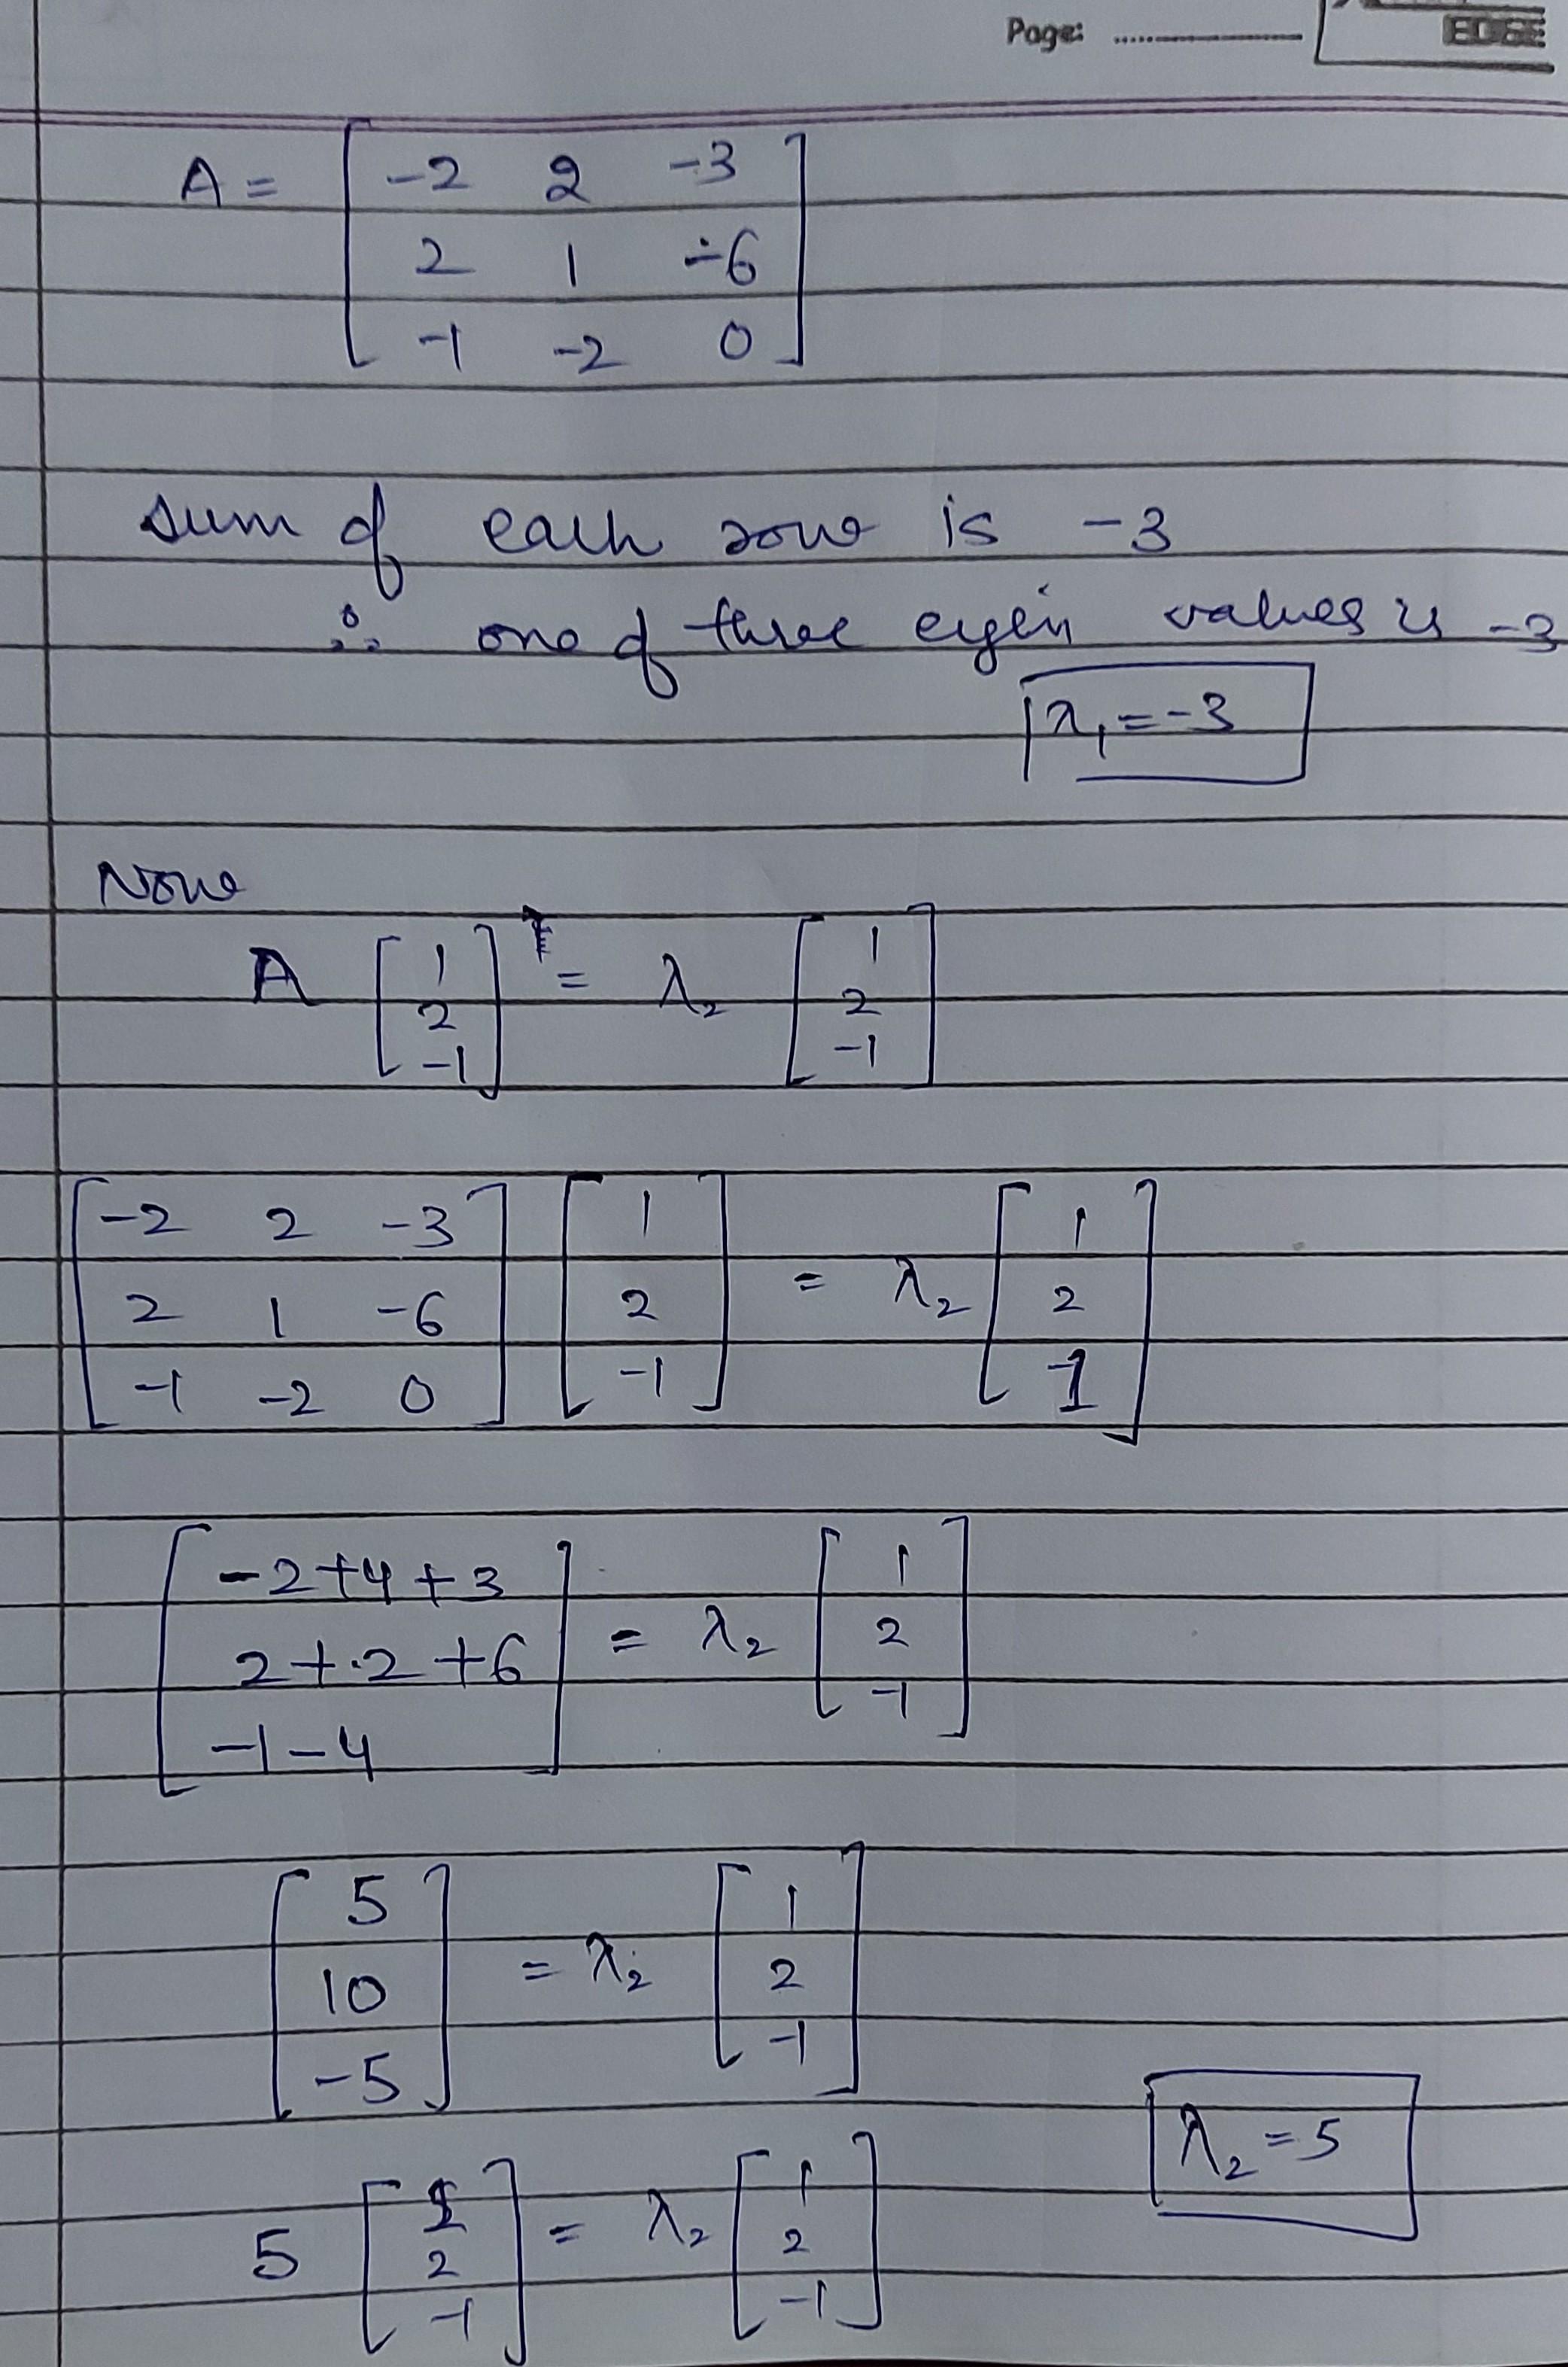 Page: ..................
EDGE
A = [ -2 2 -3
2 1 -6
-1 -2 0 ]
sum of each row is -3
∴ one of three eyein values is -3
λ₁ = -3
Now
A [ 1 2 -1 ] = λ₂ [ 1 2 -1 ]
[ -2 2 -3
2 1 -6
-1 -2 0 ] [ 1 2 -1 ] = λ₂ [ 1 2 -1 ]
[ -2+4+3
2+2+6
-1-4 ] = λ₂ [ 1 2 -1 ]
[ 5
10
-5 ] = λ₂ [ 1 2 -1 ]
λ₂ = 5
5 [ 1 2 -1 ] = λ₂ [ 1 2 -1 ]